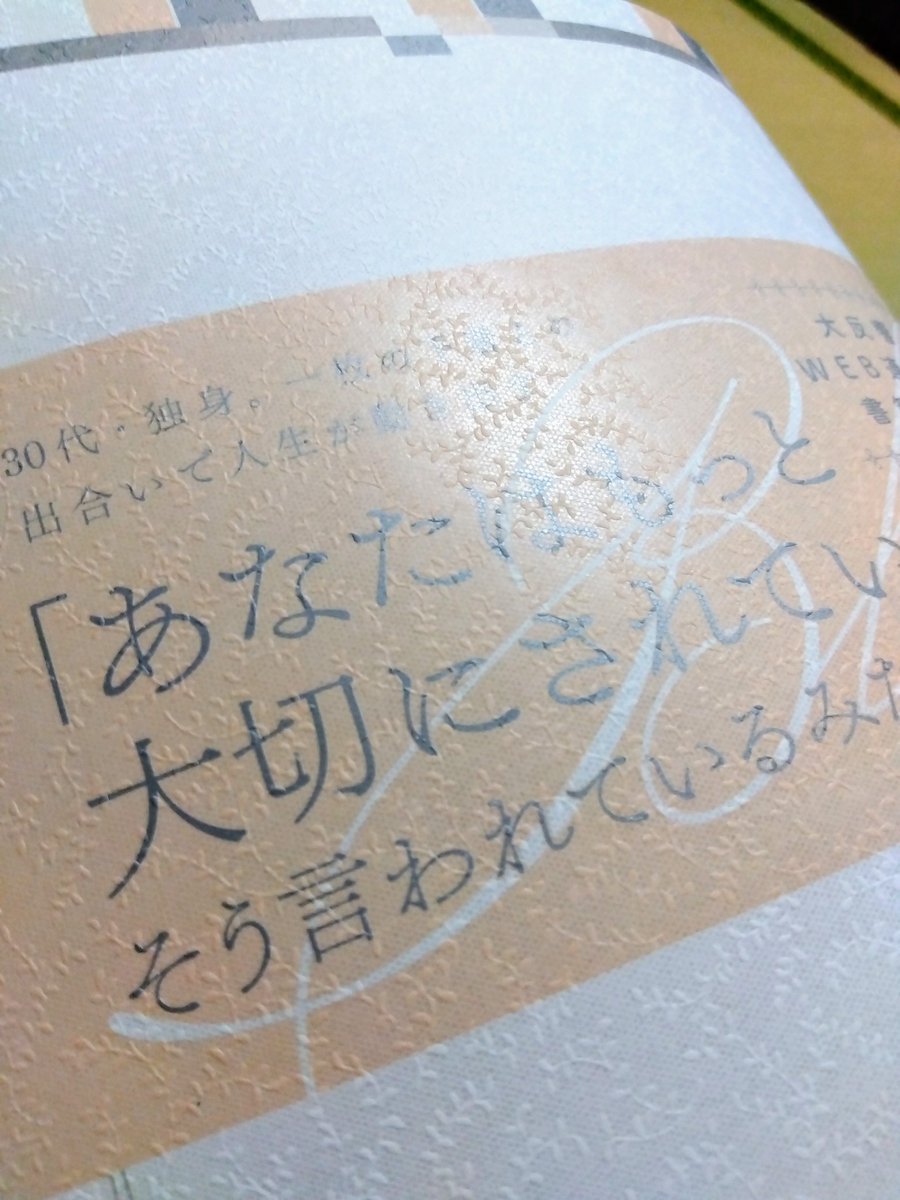 30代・独身。一枚の
出合いで人生が動き
「あなたはもっと
大切にされてい
そう言われているみた
大反響
WEB
書